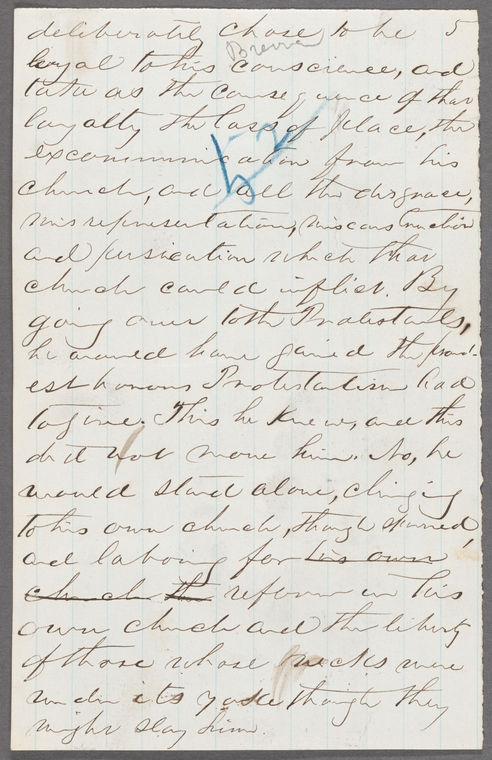 deliberately chose to be 5
Brevier
loyal to his conscience, and
take as the consequence of that
loyalty the loss of place, the
52
excommunication from his
church, and all the disgrace,
misrepresentation, misconstruction
and persecution which that
church could inflict. By
going over to the Protestants,
he would have gained the proud-
est honors Protestantism had
to give. This he knew, and this
did not move him. No, he
would stand alone, clinging
to his own church, though spurned,
and laboring for his own
church the reform in his
own church and the liberty
of those whose necks were
under its yoke though they
might slay him.